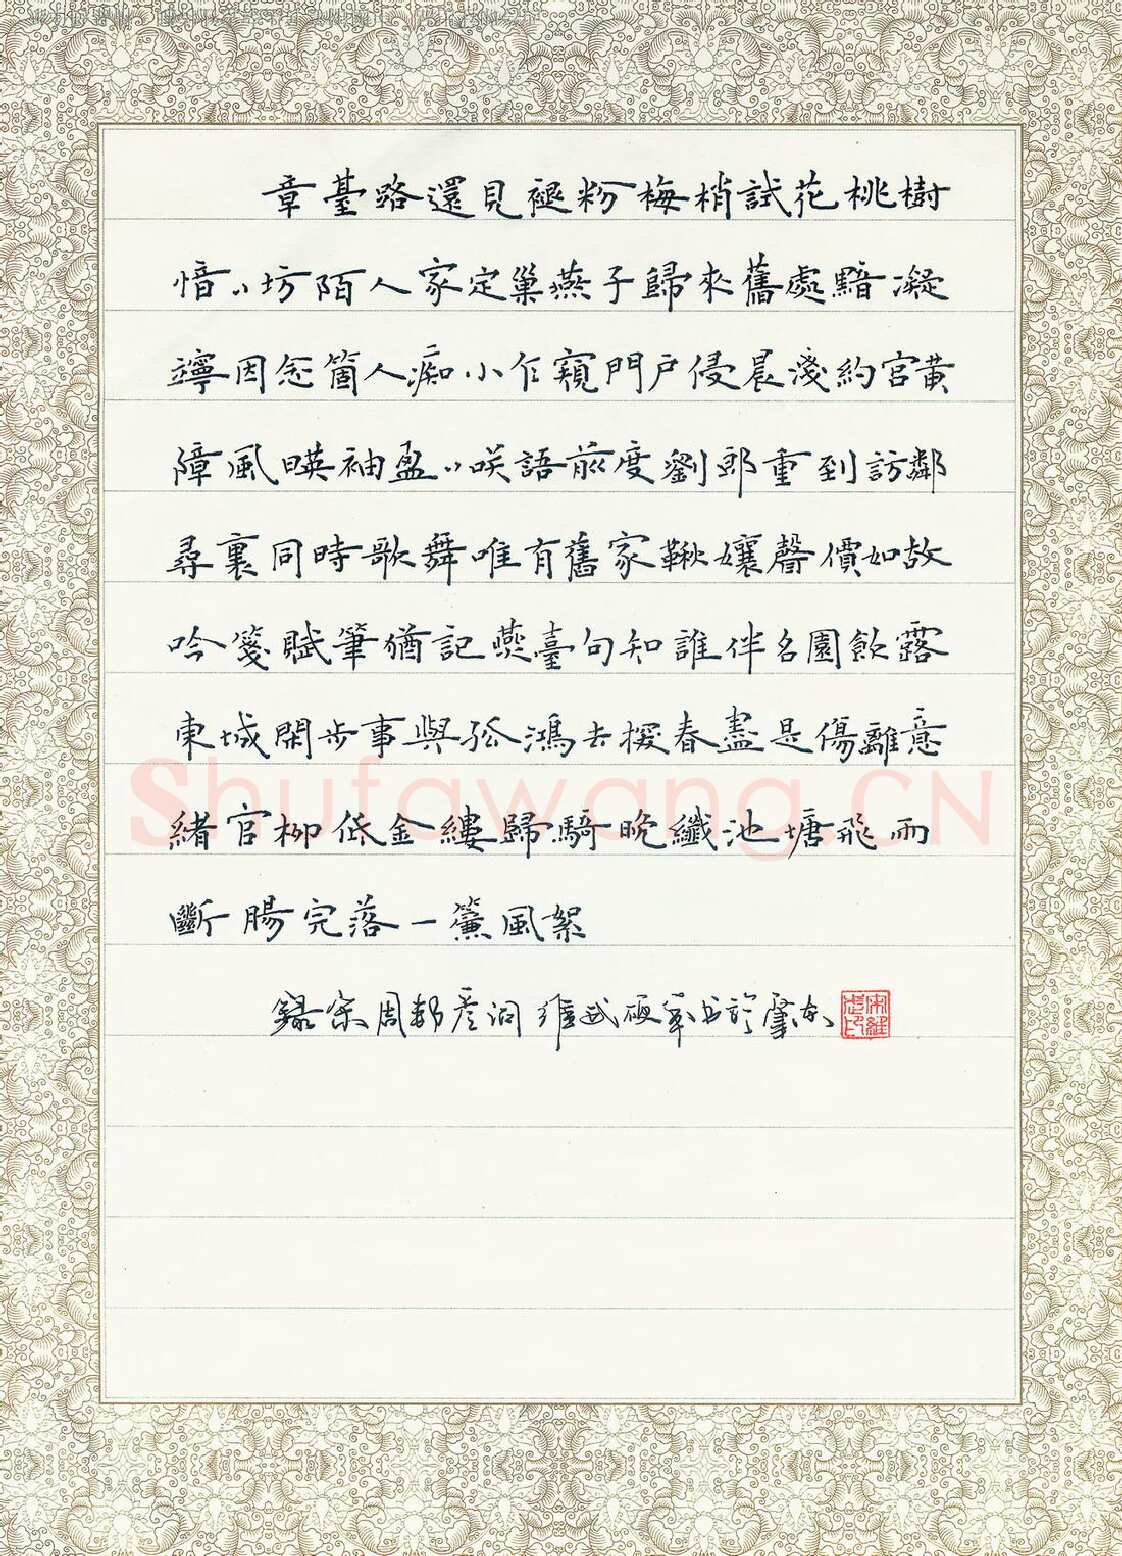 章臺路還見褪粉梅梢試花桃樹
愔〻坊陌人家定巢燕子歸來舊處黯凝
竚因念箇人癡小乍窺門戶侵晨淺約宮黃
障風暎袖盈〻咲語前度劉郎重到訪鄰
尋裏同時歌舞唯有舊家鞦孃聲價如故
吟箋賦筆猶記燕臺句知誰伴名園飲露
東城閑步事與孤鴻去探春盡是傷離意
緒官柳低金縷歸騎晚纖池塘飛雨
斷腸完落一簾風絮
錄宋周邦彥詞維武硬筆書於肇東
Shufawang.CN